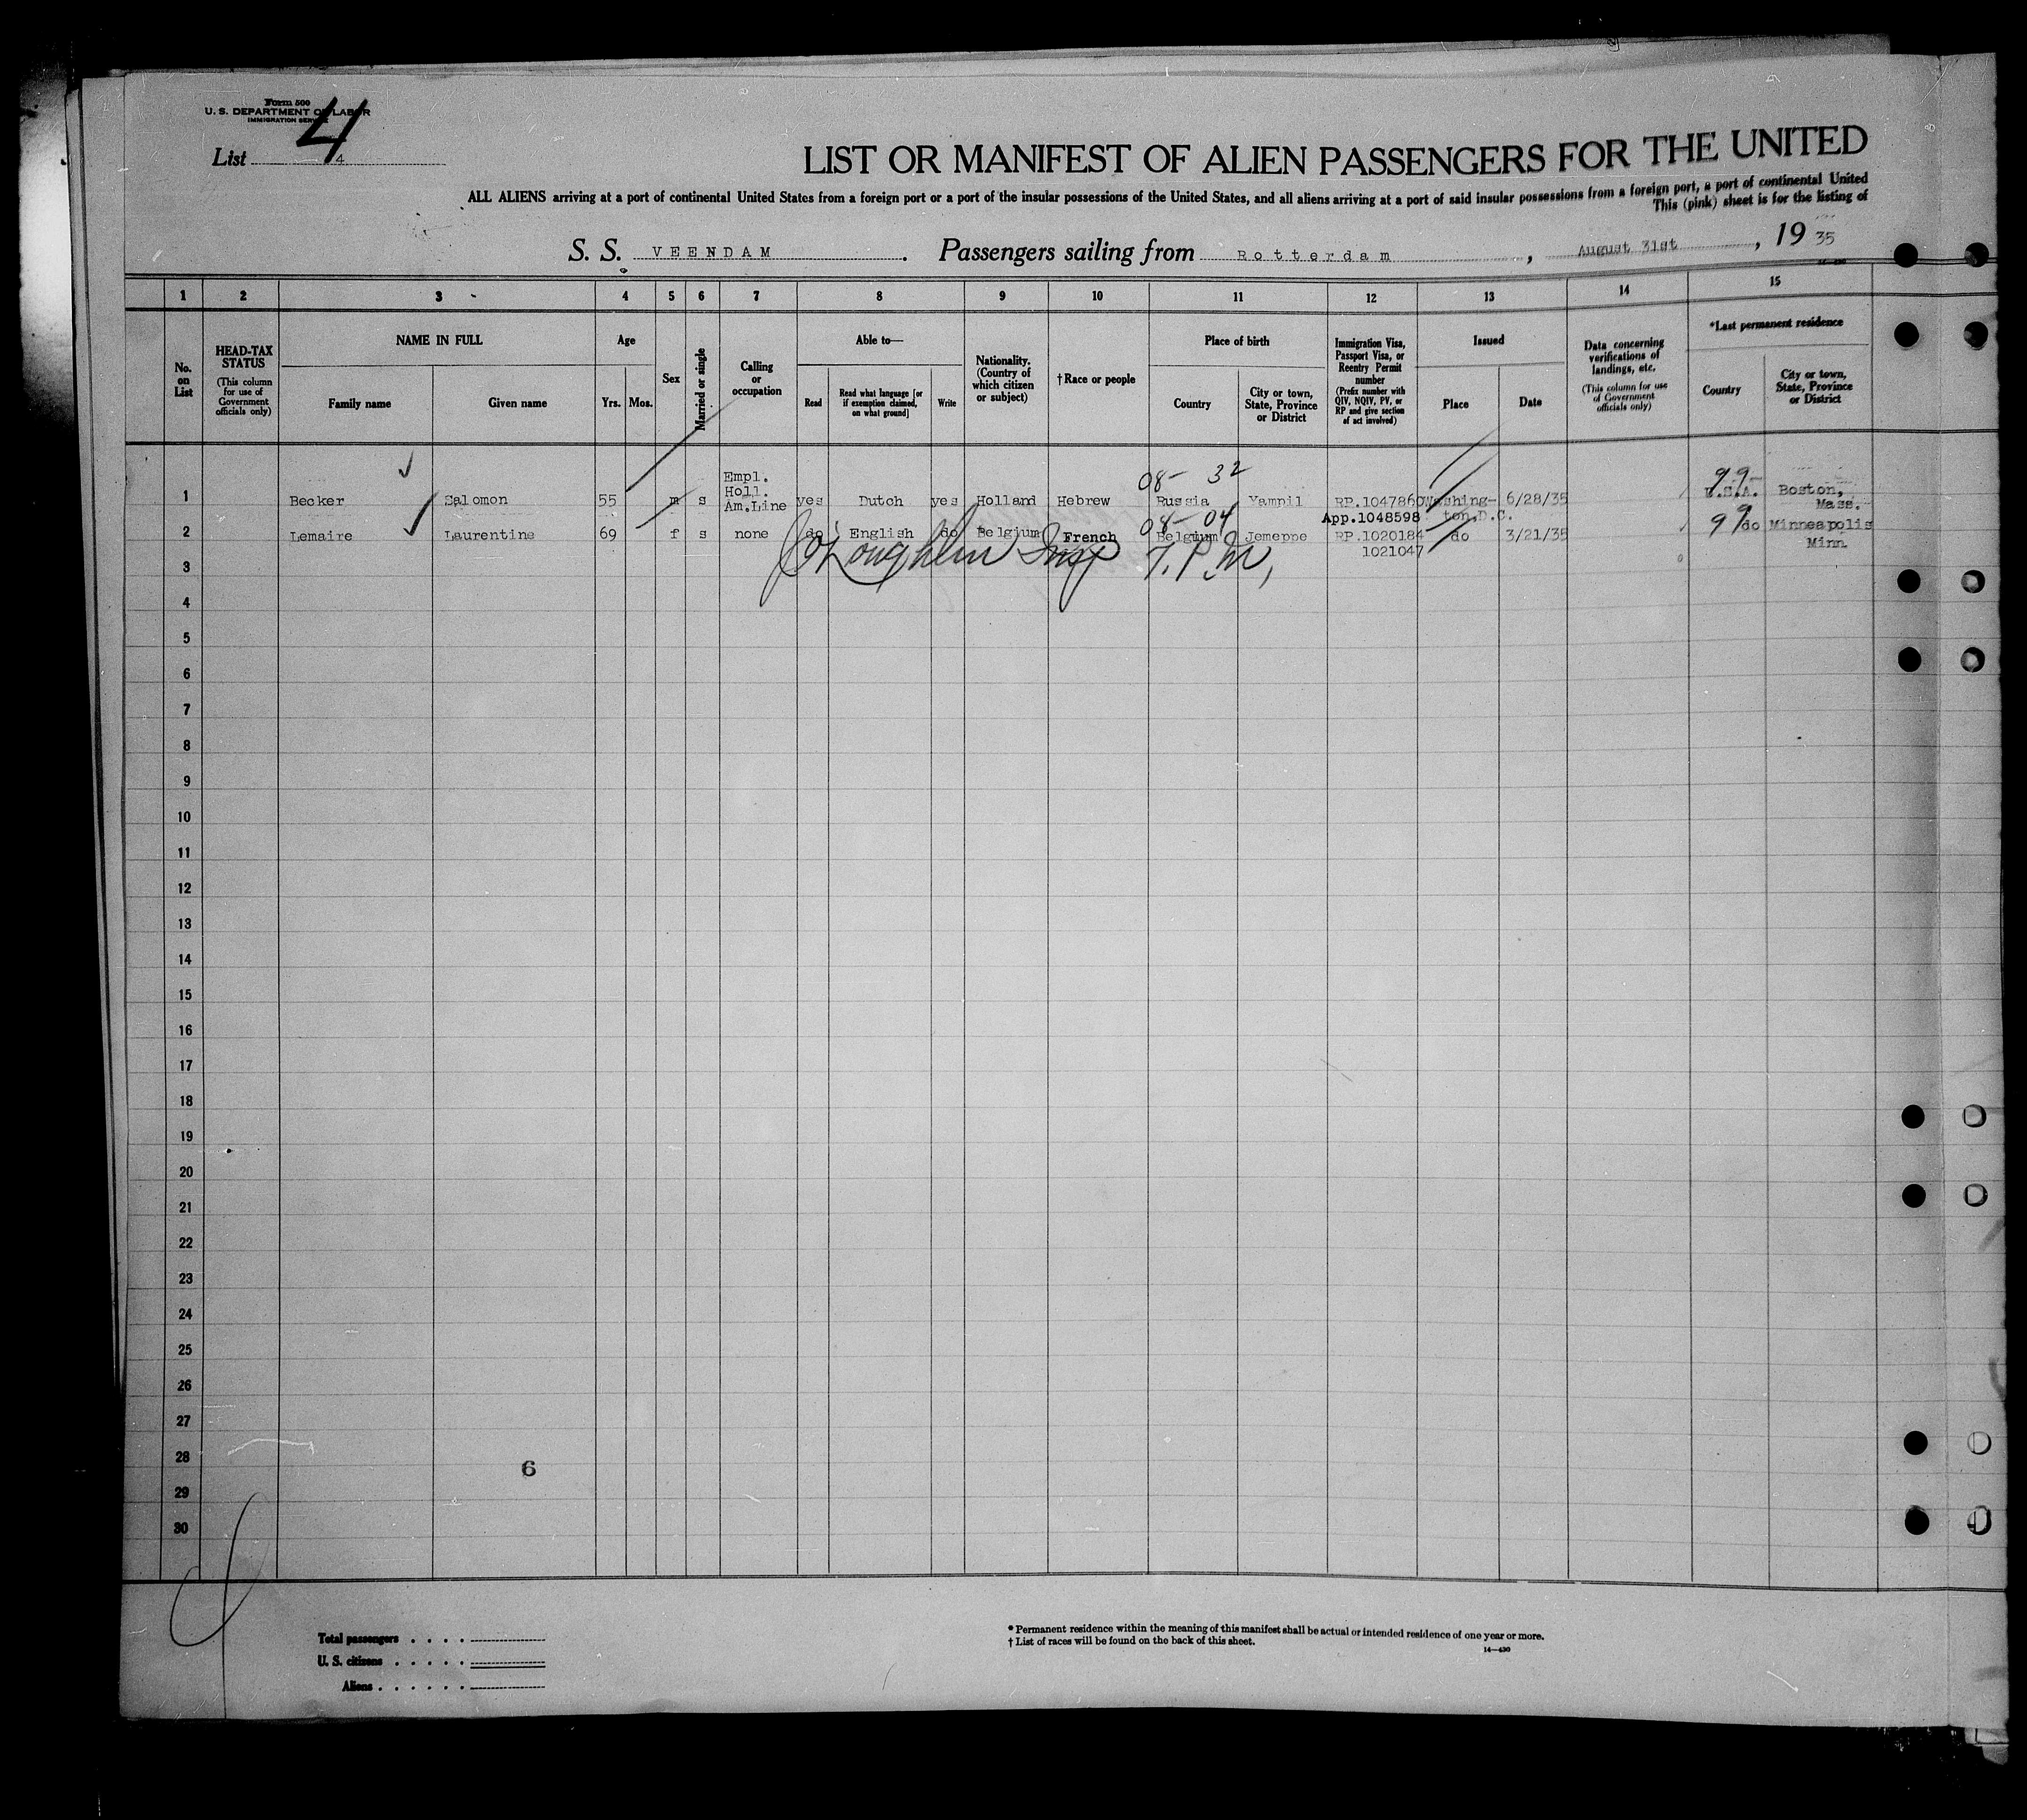 Form 500
U. S. DEPARTMENT OF LABOR
IMMIGRATION SERVICE
4
List 4
LIST OR MANIFEST OF ALIEN PASSENGERS FOR THE UNITED
ALL ALIENS arriving at a port of continental United States from a foreign port or a port of the insular possessions of the United States, and all aliens arriving at a port of said insular possessions from a foreign port, a port of continental United
This (pink) sheet is for the listing of
S. S. VEENDAM. Passengers sailing from Rotterdam, August 31st, 19 35
1 2 3 4 5 6 7 8 9 10 11 12 13 14 15
No. on List
HEAD-TAX STATUS
(This column for use of Government officials only)
NAME IN FULL
Family name
Given name
Age
Yrs. Mos.
Sex
Married or single
Calling or occupation
Able to—
Read
Read what language [or if exemption claimed, on what ground]
Write
Nationality. (Country of which citizen or subject)
†Race or people
Place of birth
Country
City or town, State, Province or District
Immigration Visa, Passport Visa, or Reentry Permit number
(Prefix number with QIV, NQIV, PV, or RP and give section of act involved)
Issued
Place
Date
Data concerning verifications of landings, etc.
(This column for use of Government officials only)
*Last permanent residence
Country
City or town, State, Province or District
08- 32
99-
1 Becker Salomon 55 m s Empl. Holl. Am.Line yes Dutch yes Holland Hebrew Russia Yampil RP.1047860 Washington,D.C. 6/28/35 U.S.A. Boston, Mass.
App.1048598
08- 04
99
2 Lemaire Laurentine 69 f s none do English do Belgium French Belgium Jemeppe RP.1020184 do 3/21/35 do Minneapolis Minn.
1021047
O'Loughlin Insp T.P.M,
3
4
5
6
7
8
9
10
11
12
13
14
15
16
17
18
19
20
21
22
23
24
25
26
27
28
6
29
30
Total passengers . . . .
U. S. citizens . . . . .
Aliens . . . . . .
* Permanent residence within the meaning of this manifest shall be actual or intended residence of one year or more.
† List of races will be found on the back of this sheet.
14—430